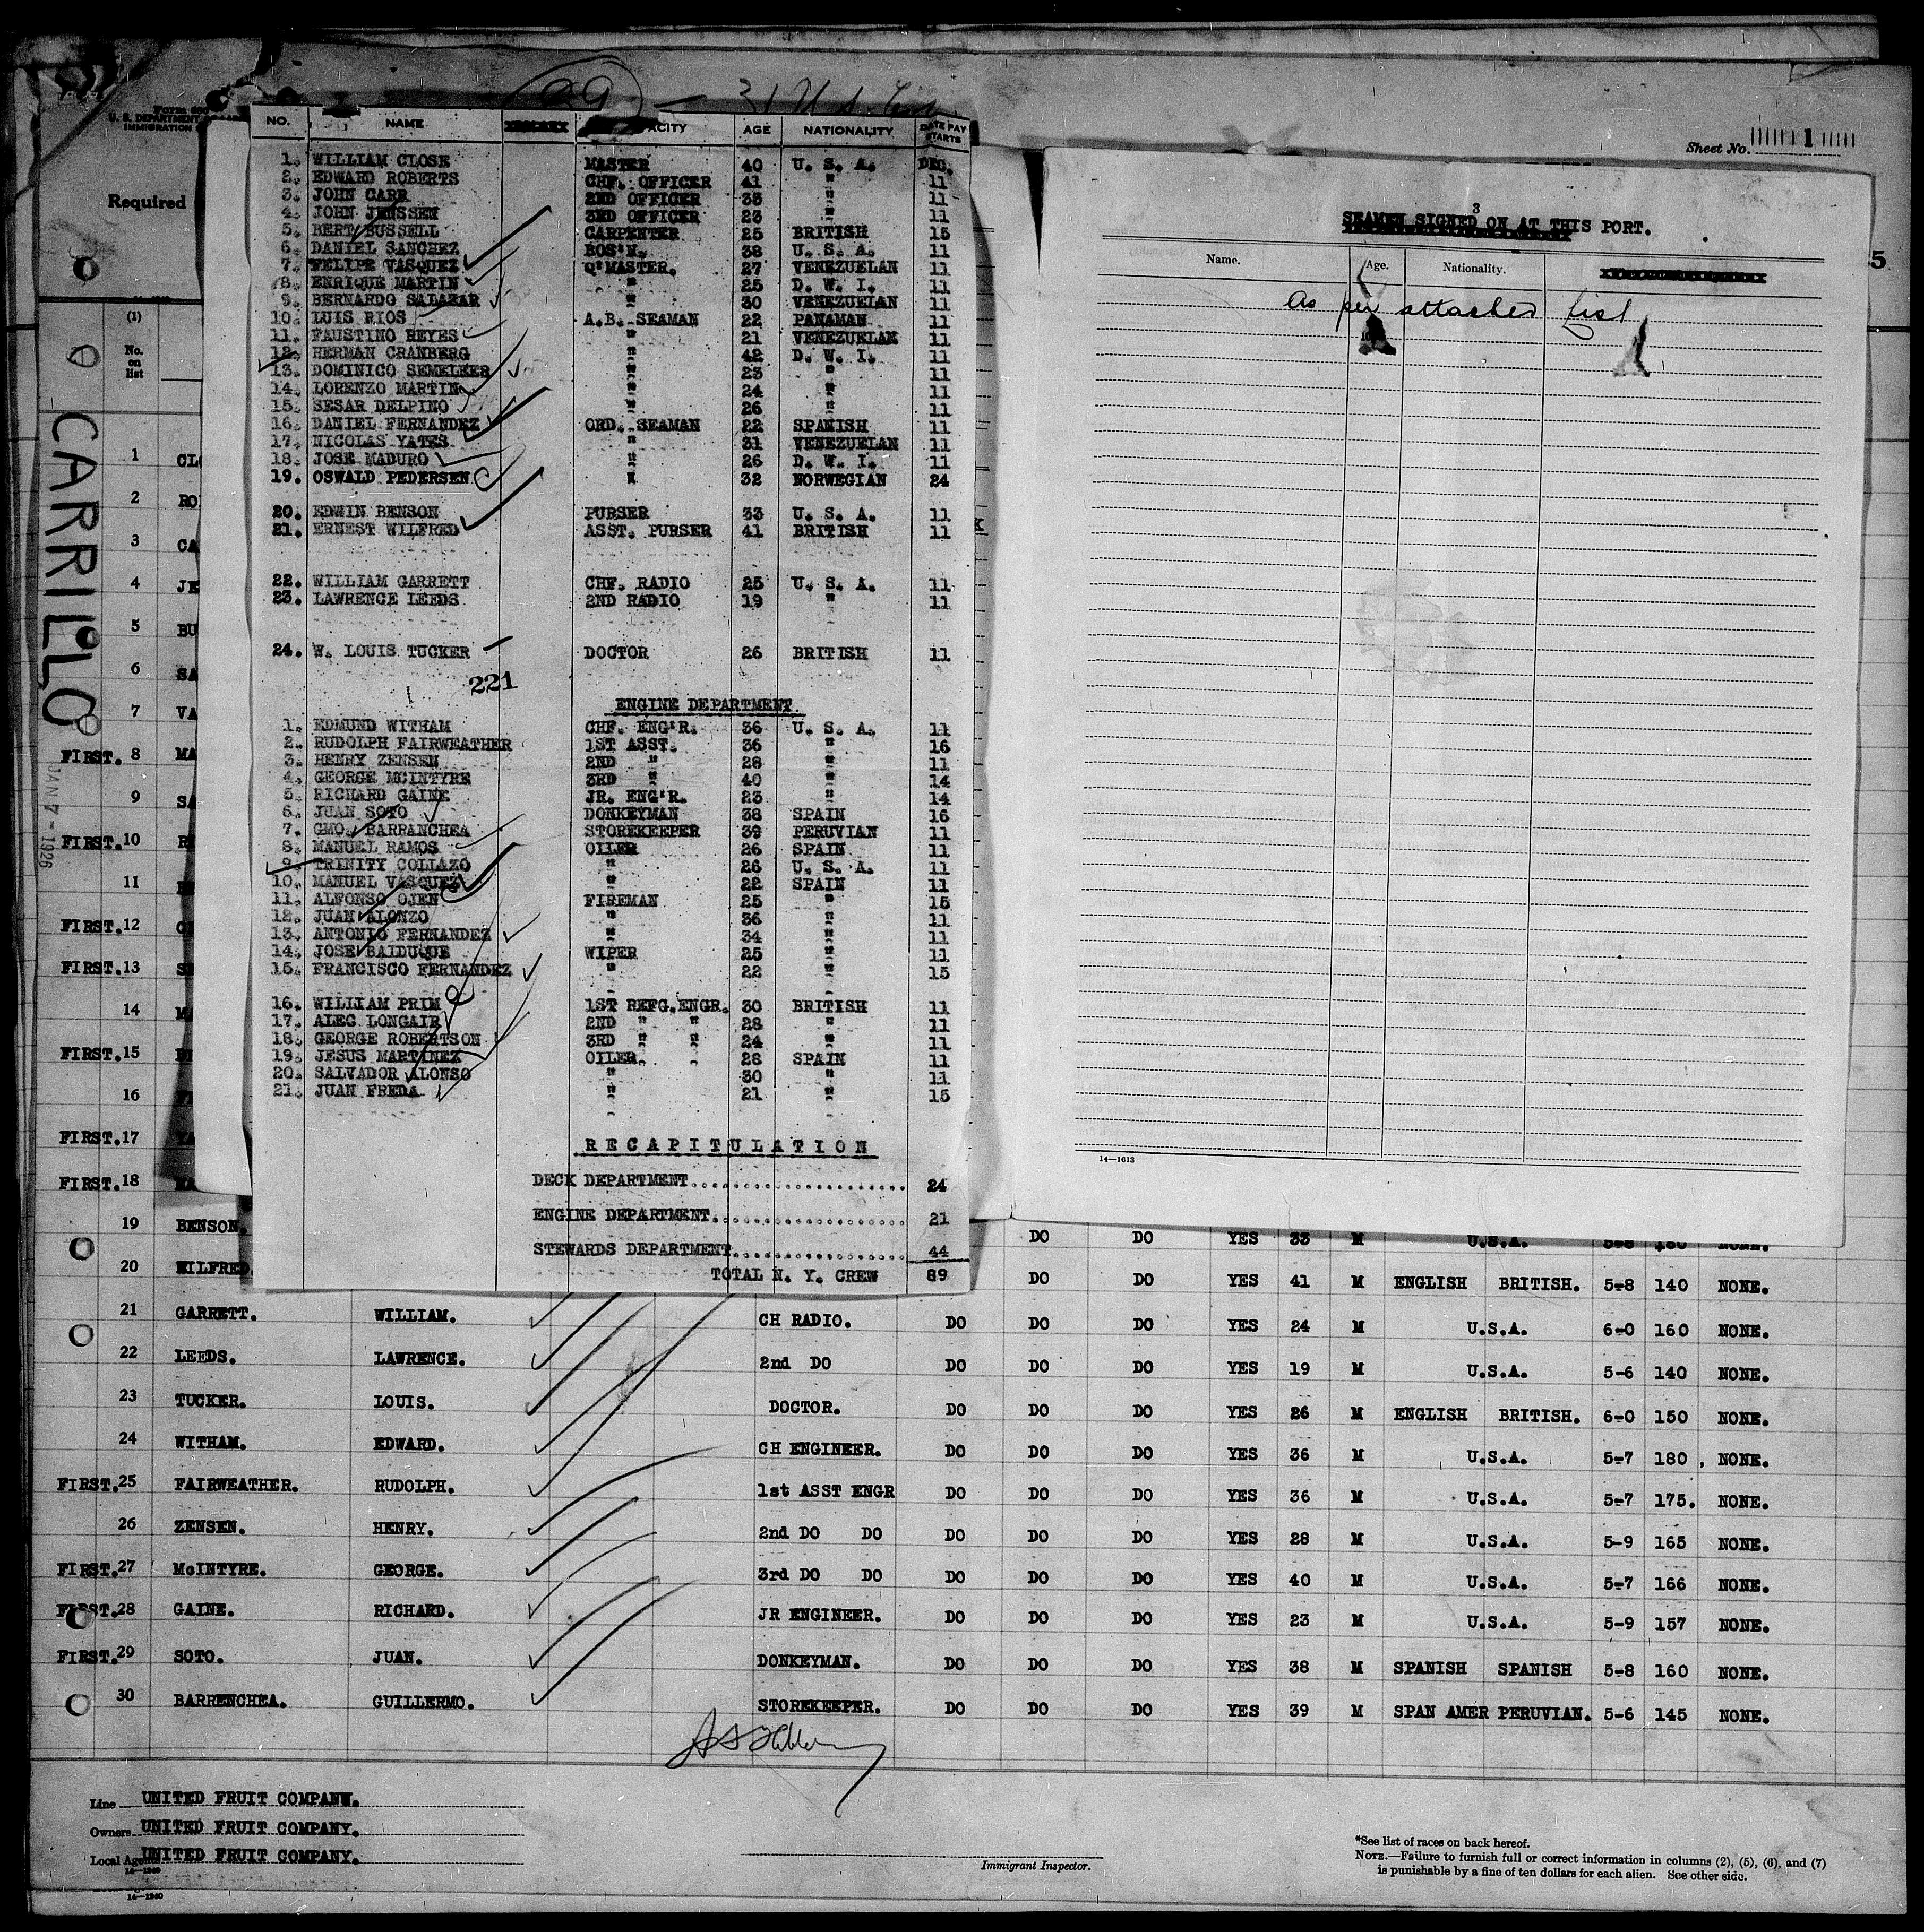 89 — 31 U.S.
NO. NAME CAPACITY AGE NATIONALITY DATE PAY STARTS
1. WILLIAM CLOSE MASTER 40 U. S. A. DEC.
2. EDWARD ROBERTS CHF. OFFICER 41 " 11
3. JOHN CARR 2ND OFFICER 35 " 11
4. JOHN JENSSEN 3RD OFFICER 23 " 11
5. BERT BUSSELL CARPENTER 25 BRITISH 15
6. DANIEL SANCHEZ BOS'N. 38 U. S. A. 11
7. FELIPE VASQUEZ Q'MASTER. 27 VENEZUELAN 11
8. ENRIQUE MARTIN " 25 D. W. I. 11
9. BERNARDO SALAZAR " 30 VENEZUELAN 11
10. LUIS RIOS A.B. SEAMAN 22 PANAMAN 11
11. FAUSTINO REYES " 21 VENEZUELAN 11
12. HERMAN CRANBERG " 42 D. W. I. 11
13. DOMINICO SEMELEER " 23 " 11
14. LORENZO MARTIN " 24 " 11
15. SESAR DELPINO " 26 " 11
16. DANIEL FERNANDEZ ORD. SEAMAN 22 SPANISH 11
17. NICOLAS YATES " 31 VENEZUELAN 11
18. JOSE MADURO " 26 D. W. I. 11
19. OSWALD PEDERSEN " 32 NORWEGIAN 24
20. EDWIN BENSON PURSER 33 U. S. A. 11
21. ERNEST WILFRED ASST. PURSER 41 BRITISH 11
22. WILLIAM GARRETT CHF. RADIO 25 U. S. A. 11
23. LAWRENCE LEEDS 2ND RADIO 19 " 11
24. W. LOUIS TUCKER DOCTOR 26 BRITISH 11
221
ENGINE DEPARTMENT
1. EDMUND WITHAM CHF. ENG'R. 36 U. S. A. 11
2. RUDOLPH FAIRWEATHER 1ST ASST. 36 " 16
3. HENRY ZENSEN 2ND " 28 " 11
4. GEORGE MCINTYRE 3RD " 40 " 14
5. RICHARD GAINE JR. ENG'R. 23 " 14
6. JUAN SOTO DONKEYMAN 38 SPAIN 16
7. GMO. BARRANCHEA STOREKEEPER 39 PERUVIAN 11
8. MANUEL RAMOS OILER 26 SPAIN 11
9. TRINITY COLLAZO " 26 U. S. A. 11
10. MANUEL VASQUEZ " 22 SPAIN 11
11. ALFONSO OJEN FIREMAN 25 " 15
12. JUAN ALONZO " 36 " 11
13. ANTONIO FERNANDEZ " 34 " 11
14. JOSE BAIDUQUE WIPER 25 " 11
15. FRANCISCO FERNANDEZ " 22 " 15
16. WILLIAM PRIM 1ST REFG.ENGR. 30 BRITISH 11
17. ALEC LONGAIR 2ND " " 28 " 11
18. GEORGE ROBERTSON 3RD " " 24 " 11
19. JESUS MARTINEZ OILER 28 SPAIN 11
20. SALVADOR ALONSO " 30 " 11
21. JUAN FREDA " 21 " 15
RECAPITULATION
DECK DEPARTMENT 24
ENGINE DEPARTMENT 21
STEWARDS DEPARTMENT 44
TOTAL N. Y. CREW 89
Sheet No. 1
3
SEAMEN SIGNED ON AT THIS PORT.
Name. Age. Nationality.
As per attached list
14—1613
5
U. S. DEPARTMENT
IMMIGRATION
Required
(1)
No. on list
CARRILLO
JAN 7 - 1926
1 CLO
2 RO
3 CA
4 JE
5 BU
6 SA
7 VA
FIRST. 8 MA
9 SA
FIRST. 10
11
FIRST. 12
FIRST. 13
14
FIRST. 15
16
FIRST. 17
FIRST. 18
19 BENSON. DO DO YES 33 M U.S.A. NONE.
20 WILFRED. DO DO YES 41 M ENGLISH BRITISH. 5-8 140 NONE.
21 GARRETT. WILLIAM. CH RADIO. DO DO DO YES 24 M U.S.A. 6-0 160 NONE.
22 LEEDS. LAWRENCE. 2nd DO DO DO DO YES 19 M U.S.A. 5-6 140 NONE.
23 TUCKER. LOUIS. DOCTOR. DO DO DO YES 26 M ENGLISH BRITISH. 6-0 150 NONE.
24 WITHAM. EDWARD. CH ENGINEER. DO DO DO YES 36 M U.S.A. 5-7 180 NONE.
FIRST. 25 FAIRWEATHER. RUDOLPH. 1st ASST ENGR DO DO DO YES 36 M U.S.A. 5-7 175. NONE.
26 ZENSEN. HENRY. 2nd DO DO DO DO DO YES 28 M U.S.A. 5-9 165 NONE.
FIRST. 27 McINTYRE. GEORGE. 3rd DO DO DO DO DO YES 40 M U.S.A. 5-7 166 NONE.
FIRST. 28 GAINE. RICHARD. JR ENGINEER. DO DO DO YES 23 M U.S.A. 5-9 157 NONE.
FIRST. 29 SOTO. JUAN. DONKEYMAN. DO DO DO YES 38 M SPANISH SPANISH 5-8 160 NONE.
30 BARRENCHEA. GUILLERMO. STOREKEEPER. DO DO DO YES 39 M SPAN AMER PERUVIAN. 5-6 145 NONE.
Line UNITED FRUIT COMPANY.
Owners UNITED FRUIT COMPANY.
Local Agents UNITED FRUIT COMPANY.
14—1240
14—1240
Immigrant Inspector.
*See list of races on back hereof.
NOTE.—Failure to furnish full or correct information in columns (2), (5), (6), and (7)
is punishable by a fine of ten dollars for each alien. See other side.